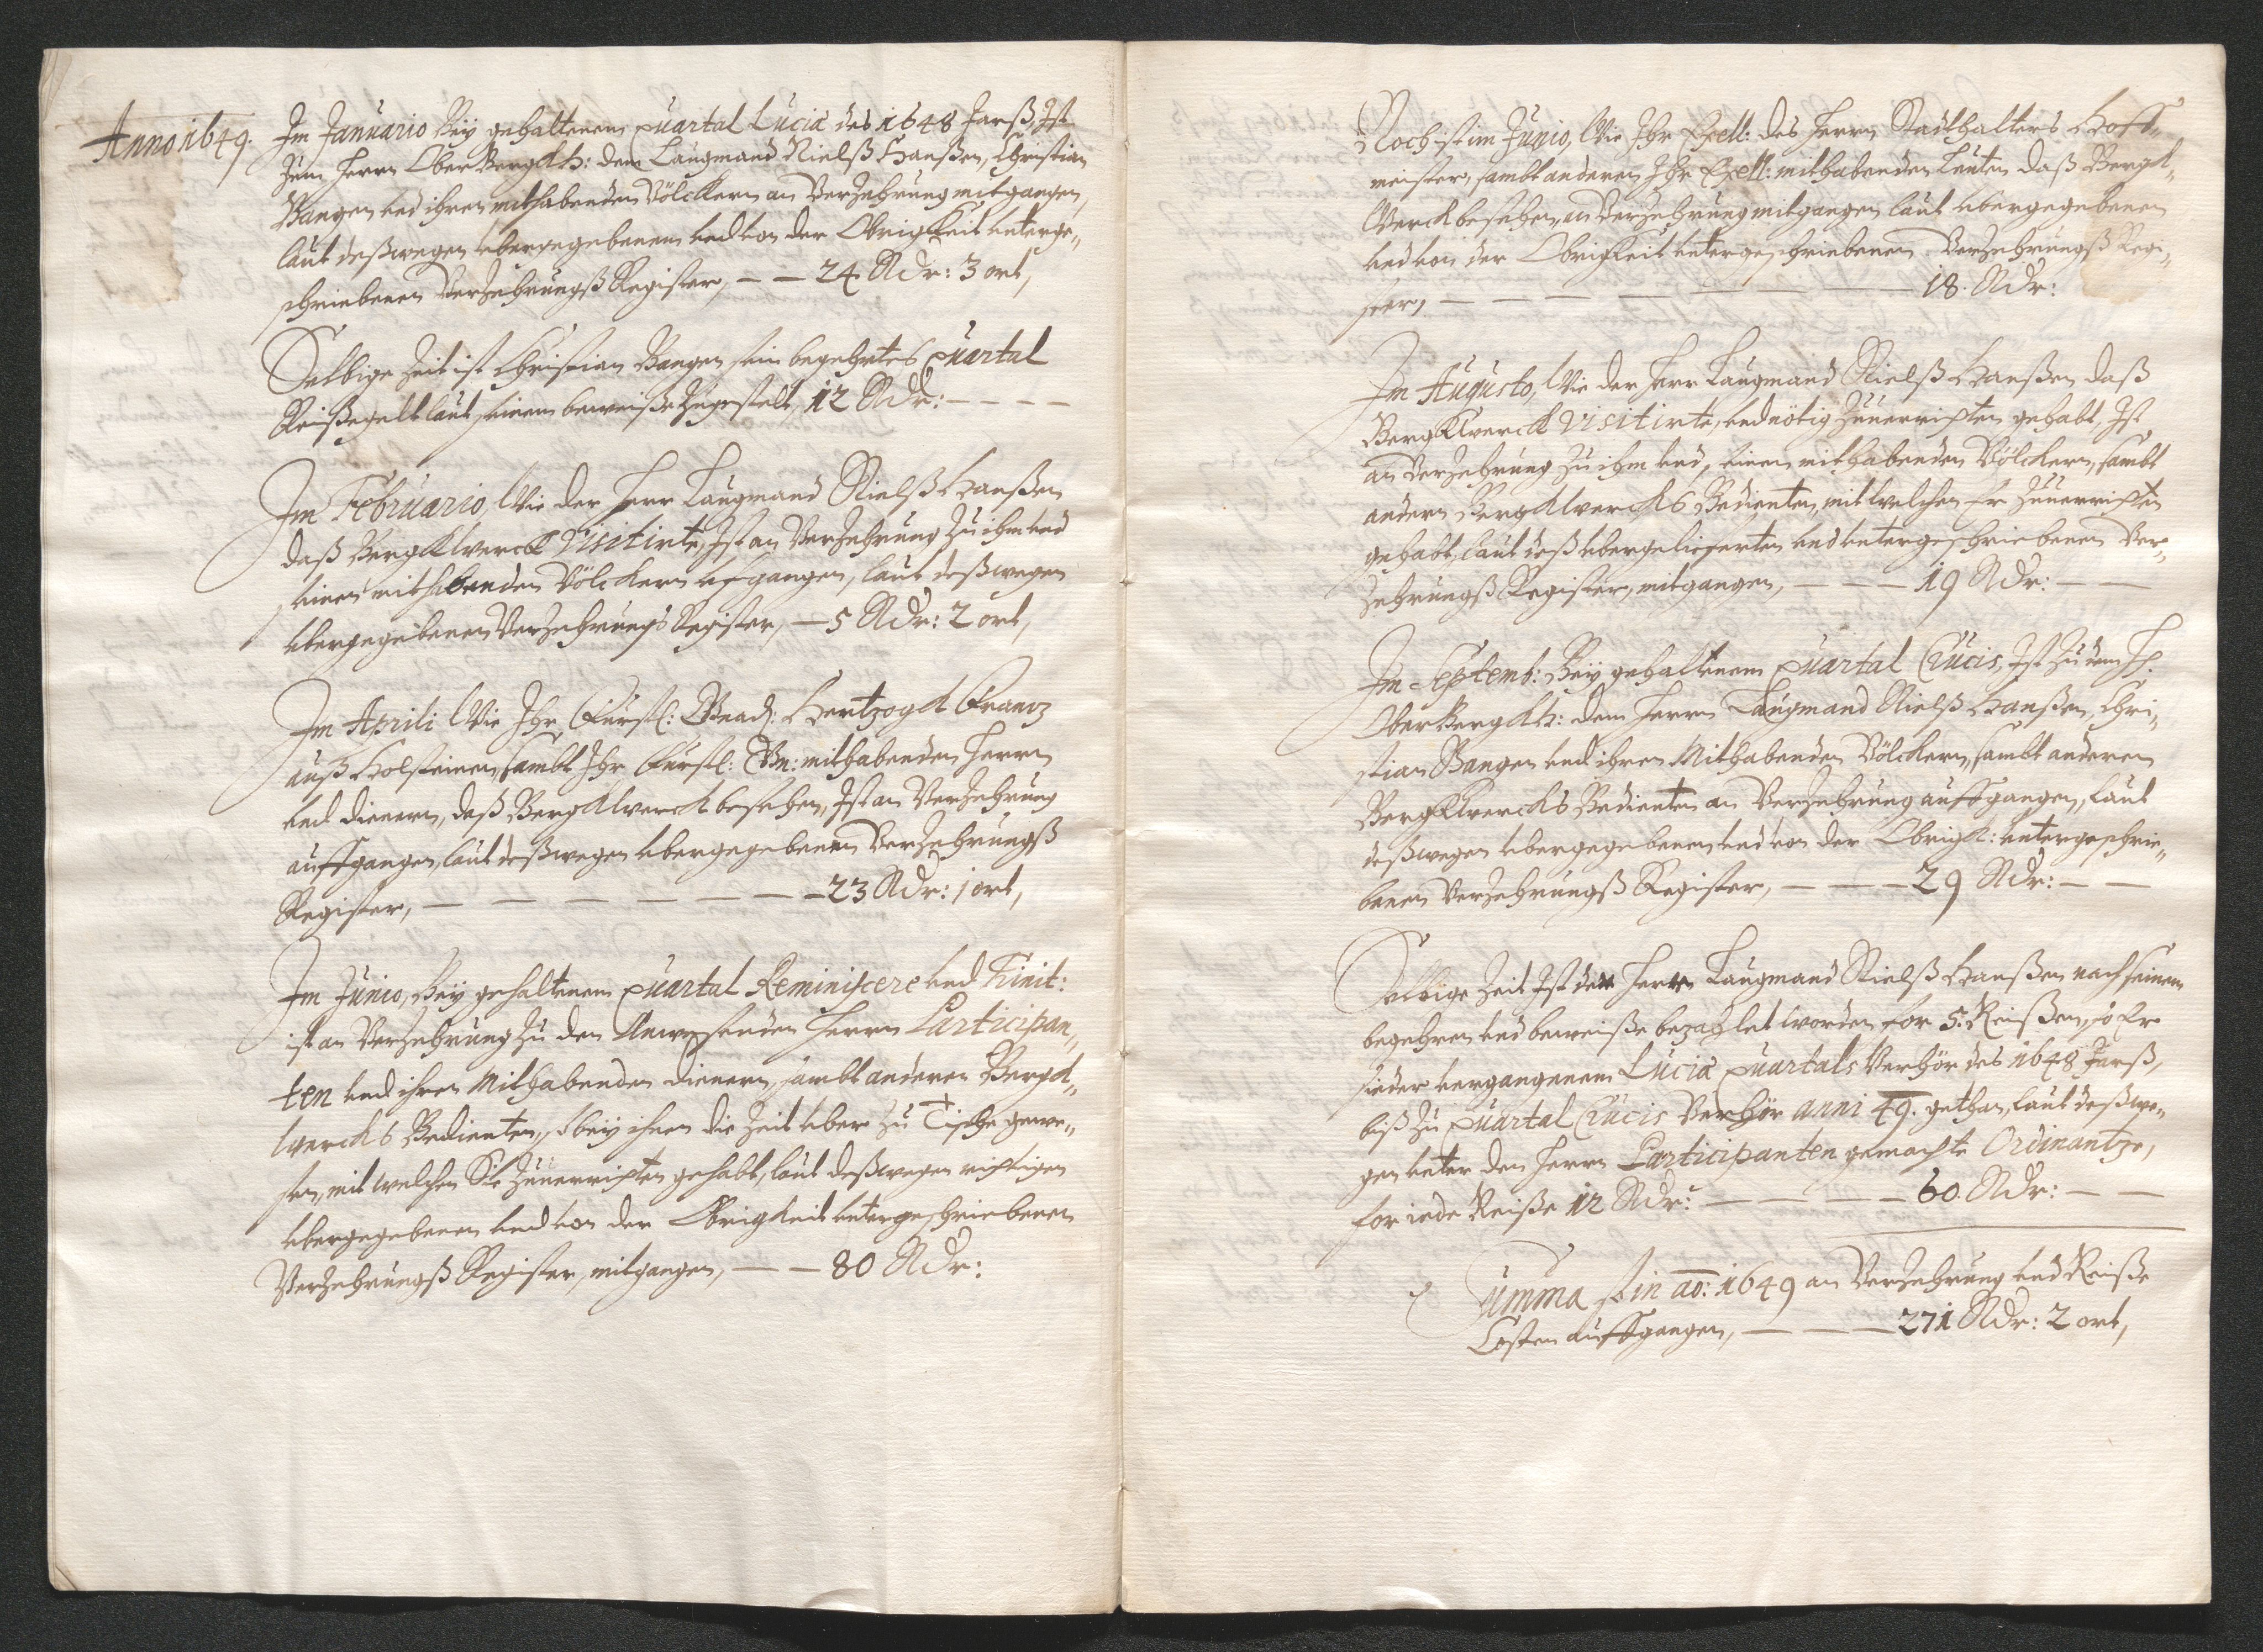 Anno 1649.
Im Januario Beÿ gehaltenem Quartal Luciæ des 1648 Jarß, Ist
zum Herrn OberBergkh: dem Laugmand Nielß Hanßen, Christian
Bangen und ihren mithabenden Völckern an Verzehrung mitgangen,
laut deßwegen ubergegebenem und von der Obrigkeit unterge„
schriebenen Verzehrungß Register, — — 24 Rdr: 3 ort,
Selbige Zeit ist Christian Bangen sein begehrtes Quartal
Reißegelt laut seinem beweiße zugestelt, 12 Rdr: — — — —
Im Februario, Wie der Herr Laugmand Nielß Hanßen
daß Bergkwerck Visitirte, Ist an Verzehrung zu ihm und
seinen mithabenden Völckern ufgangen, laut deßwegen
ubergegebenen Verzehrungs Register, — 5 Rdr: 2 ort,
Im Aprili Wie Ihr Fürstl: Gnad: Hertzogk Frantz
auß Holsteinen, sambt Ihr Fürstl: Gn: mithabenden Herrn
und dienern, daß Bergkwerck besehen, Ist an Verzehrung
auffgangen, laut deßwegen ubergegebenen Verzehrungß
Register, — — — — — — — 23 Rdr: 1 ort,
Im Junio, Beÿ gehaltenem Quartal Reminiscere und Trinit:
ist an Verzehrung zu den Anwesenden Herrn Participan„
ten und ihren Mithabenden dienern, sambt anderen Bergk„
wercks Bedienten, so beÿ ihnen die Zeit uber zu Tische gewe„
sen, mit welchen Sie zuverrichten gehabt, laut deßwegen richtigen
ubergegebenen und von der Obrigkeit untergeschriebenen
Verzehrungß Register, mitgangen, — — 80 Rdr:
Noch ist im Junio, Wie Ihr Exell: des Herrn Stadthalters Hoff„
meister, sambt anderen Ihr Exell: mithabenden Leuten daß Bergk„
Werck besehen, an Verzehrung mitgangen laut ubergegebenen
und von der Obrigkeit untergeschriebenen Verzehrungß Regi„
ster, — — — — — — — — 18. Rdr:
Im Augusto, Wie der Herr Laugmand Nielß Hanßen daß
Bergkwerck Visitirte, und nötig zuverrichten gehabt, Ist
an Verzehrung zu ihm und seinen mithabenden Völckern, sambt
andern Bergkwercks Bedienten, mit welchen Er zuverrichten
gehabt, laut deß ubergelieferten und untergeschriebenen Ver„
zehrungß Register, mitgangen, — — — 19 Rdr: — —
Im Septemb: Beÿ gehaltenem Quartal Crucis, Ist zu dem H:
OberBergkh: dem Herrn Laugmand Nielß Hanßen, Chri„
stian Bangen und ihren Mithabenden Völckern, sambt anderen
Bergkwercks Bedienten an Verzehrung auffgangen, laut
deßwegen ubergegebenen und von der Obrigk: untergeschrie„
benen Verzehrungß Register, — — — 29 Rdr: — —
Selbige Zeit Ist dem Herrn Laugmand Nielß Hanßen nach seinem
begehren und beweiße bezahlet worden for 5. Reißen, so Er
sieder vergangenem Luciæ Quartals Verhör des 1648 Jarß,
biß zu Quartal Crucis Verhör anni 49. gethan, laut deßwe„
gen unter den Herrn Participanten gemachte Ordinantze,
for iede Reiße 12 Rdr: — — — — 60. Rdr: — —
Summa so in ao: 1649 an Verzehrung und Reiße
Costen auffgangen, — — — 271 Rdr: 2 ort,